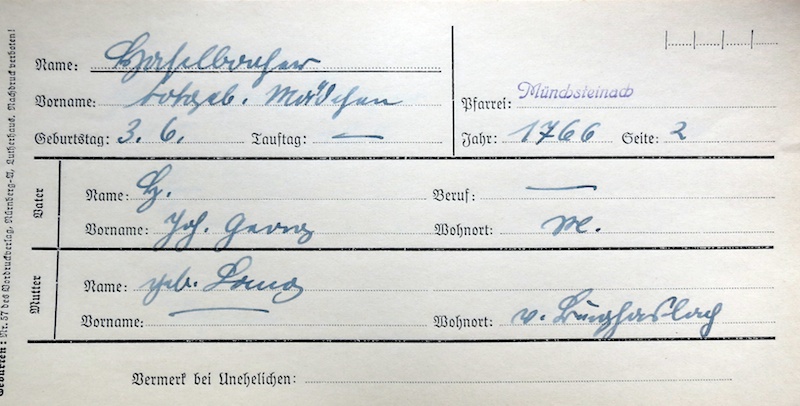 Name: Haselbacher
Vorname: totgeb. Mädchen
Pfarrei: Münchsteinach
Geburtstag: 3. 6. Tauftag: —
Jahr: 1766 Seite: 2
Vater
Name: H.
Beruf: —
Vorname: Joh. Georg
Wohnort: M.
Mutter
Name: geb.
Vorname: —
Wohnort: v. Burghaslach
Vermerk bei Unehelichen:
Geburten: Nr. 57 des Vordruckverlag, Nürnberg-A, Lutherhaus. Nachdruck verboten!